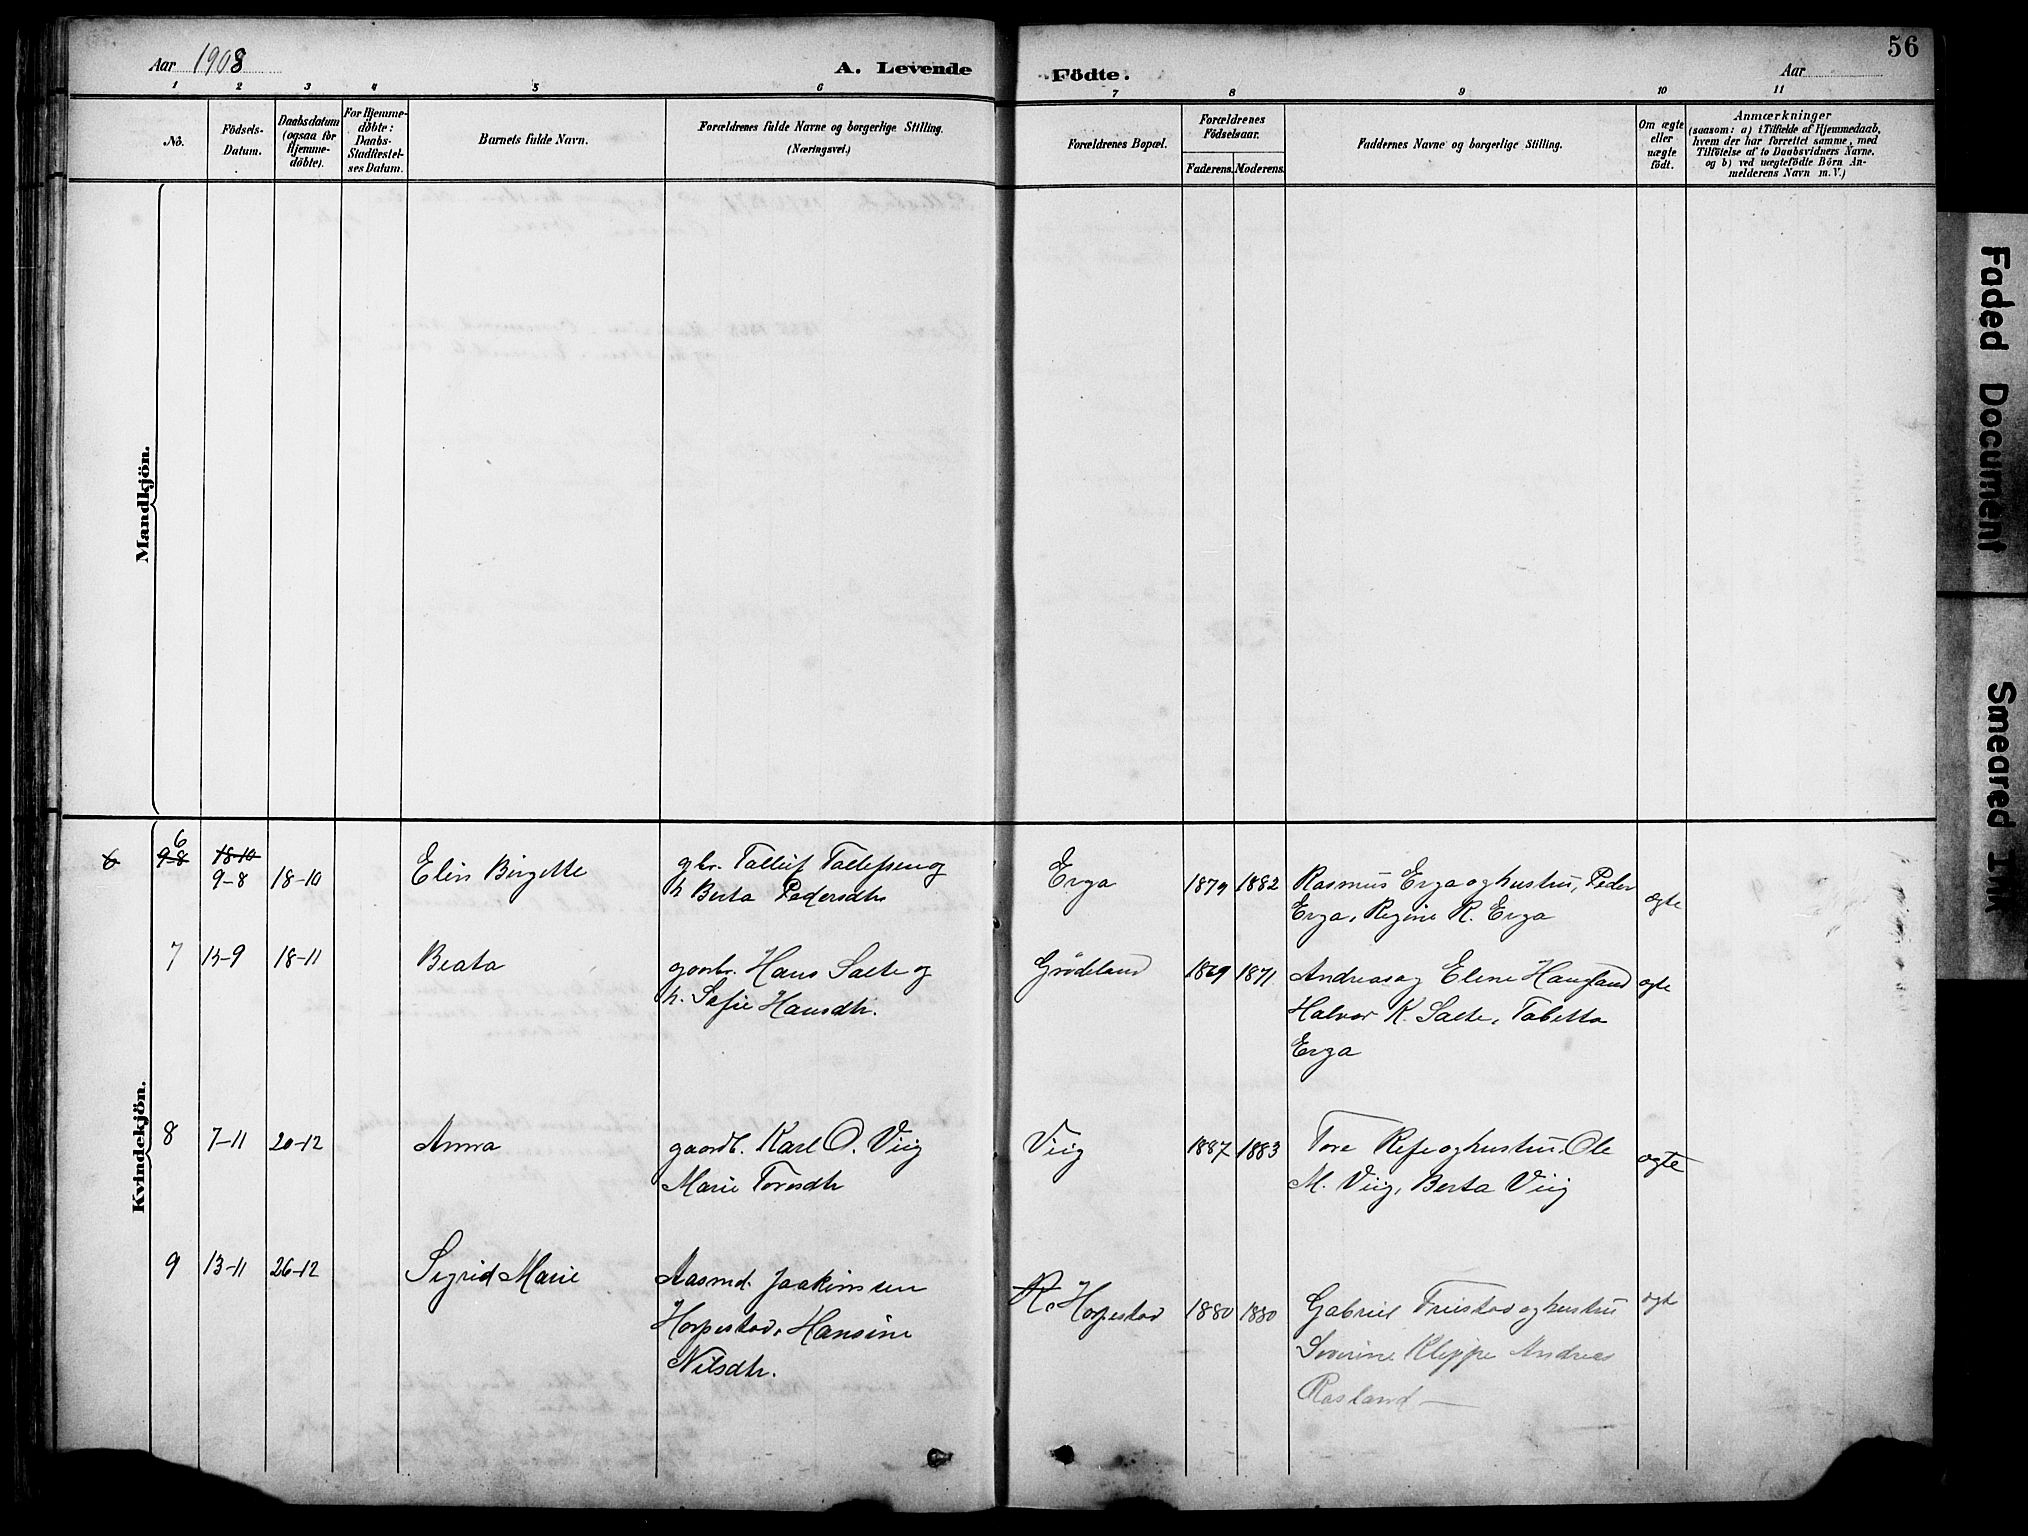 Aar 1908
A. Levende Födte.
Aar
56
1 2 3 4 5 6 7 8 9 10 11
No.
Födsels-Datum.
Daabsdatum (ogsaa for Hjemme-döbte).
For Hjemme-döbte: Daabs-Stadfæstel-ses Datum.
Barnets fulde Navn.
Forældrenes fulde Navne og borgerlige Stilling.
(Næringsvei.)
Forældrenes Bopæl.
Forældrenes Födselsaar.
Faderens. Moderens.
Faddernes Navne og borgerlige Stilling.
Om ægte eller uægte födt.
Anmærkninger
(saasom: a) i Tilfælde af Hjemmedaab,
hvem der har forrettet samme, med
Tilföielse af to Daabsvidners Navne.
og b) ved uægtefödte Börn An-
melderens Navn m. V.)
Mandkjön.
Kvindekjön.
6 9-8 18-10
6 9-8 18-10 Elin Birgitte gbr. Talleif Tallefsen og Erga 1879 1882 Rasmus Erga og hustru, Peder ægte
h Berta Pedersdtr Erga, Regine R. Erga
7 13-9 18-11 Beata gaardbr. Hans Salte og Grødeland 1869 1871 Andreas og Elene Haugland ægte
h. Sofie Hansdtr. Halvor K. Salte, Tabitta
Erga
8 7-11 20-12 Anna gaardb. Karl O. Viig Viig 1887 1883 Tore Refe og hustru Ole ægte
Marie Toresdtr M. Viig, Berta Viig
9 13-11 26-12 Sigrid Marie Aasmd. Joakimsen Horpestad 1880 1880 Gabriel Friestad og hustru ægt
Horpestad, Hansine Severine Kleppe Andreas
Nilsdtr. Rosland
Faded Document
Smeared Ink